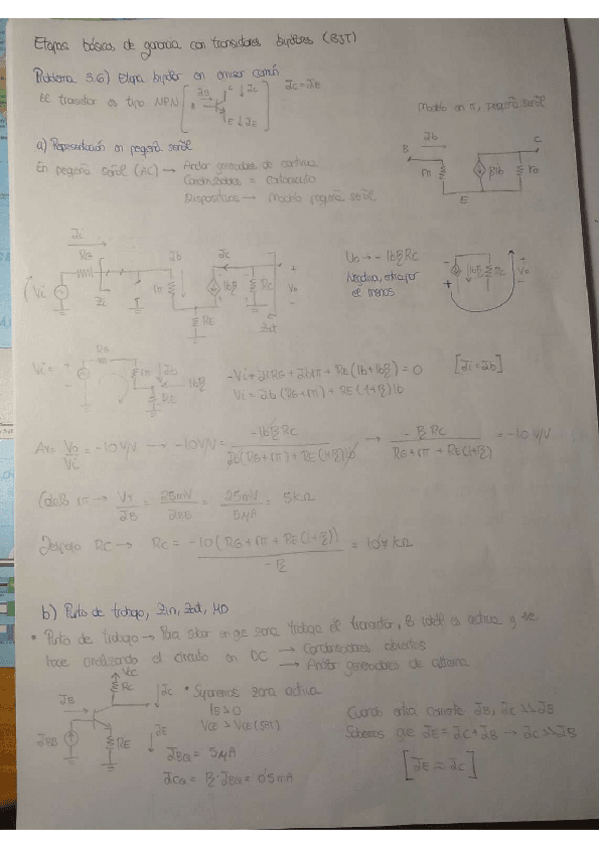 Etapas básicas de ganancia con transistores bipolares (BJT)
Problema 3.6) Etapa bipolar en emisor común
El transistor es tipo NPN
IB
C
IC
E
IE
IC ≈ IE
Modelo en π, pequeña señal
a) Representación en pequeña señal
En pequeña señal (AC) → Anular generadores de continua
Condensadores = cortocircuito
Dispositivos → Modelo pequeña señal
B
Ib
C
rπ
βib
ro
E
Ii
RG
Vi
Zi
Ib
rπ
RE
IC
ibβ
RC
+
Vo
-
Zout
Vo → - ibβRC
Negativa, otra por
el menos
ibβ
RC
Vo
Vi =
RG
rπ
Ib
RE
ibβ
-Vi + IiRG + Ibrπ + RE(ib+ibβ) = 0
[Ii = Ib]
Vi = Ib (RG+rπ) + RE (1+β) ib
Av = Vo/Vi = -10 V/V → -10 V/V = -ibβRC / Ib(RG+rπ) + RE(1+β)ib → -βRC / RG + rπ + RE(1+β) = -10 V/V
rπ → VT/IB = 25mV/IB = 25mV/5μA = 5kΩ
Despejo RC → RC = -10(RG + rπ + RE(1+β)) / -β = kΩ
b) Punto de trabajo, Zin, Zout, MD
• Punto de trabajo → Para saber en que zona trabaja el transistor, lo ideal es activa y se
hace analizando el circuito en DC → Condensadores abiertos
→ Anular generadores de alterna
VCC
RC
IC
IB
IBB
RE
IE
• Suponemos zona activa
IB > 0
VCE > VCE(SAT)
IBQ = 5μA
ICQ = β·IBQ = 0'5mA
Cuando corriente IB, IC >> IB
Sabemos que IE = IC + IB → IC >> IB
[IE ≈ IC]